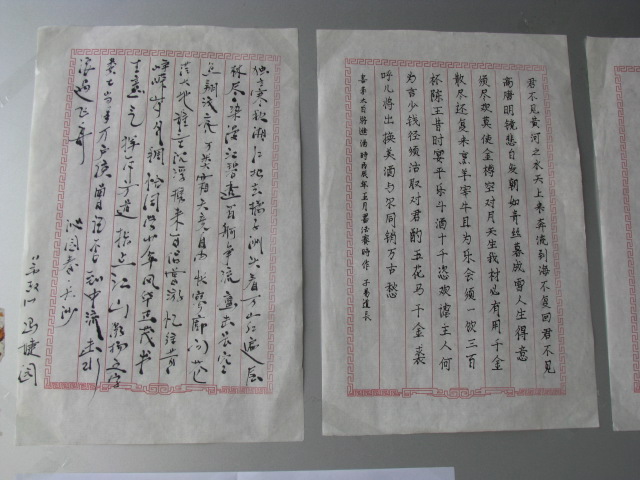 君不见黄河之水天上来奔流到海不复回君不见
高唐明镜悲白发朝如青丝暮成雪人生得意
须尽欢莫使金樽空对月天生我材必有用千金
散尽还复来烹羊宰牛且为乐会须一饮三百
杯陈王昔时宴平乐斗酒十千恣欢谑主人何
为言少钱径须沽取对君酌五花马千金裘
呼儿将出换美酒与尔同销万古愁
李太白将进酒
独立寒秋湘江北去橘子洲头看万山红遍层
林尽染漫江碧透百舸争流鹰击长空
鱼翔浅底万类霜天竞自由怅寥廓问苍
茫大地谁主沉浮携来百侣曾游忆往昔
峥嵘岁月稠恰同学少年风华正茂书
生意气挥斥方遒指点江山激扬文字
粪土当年万户侯曾记否到中流击水
浪遏飞舟 沁园春长沙